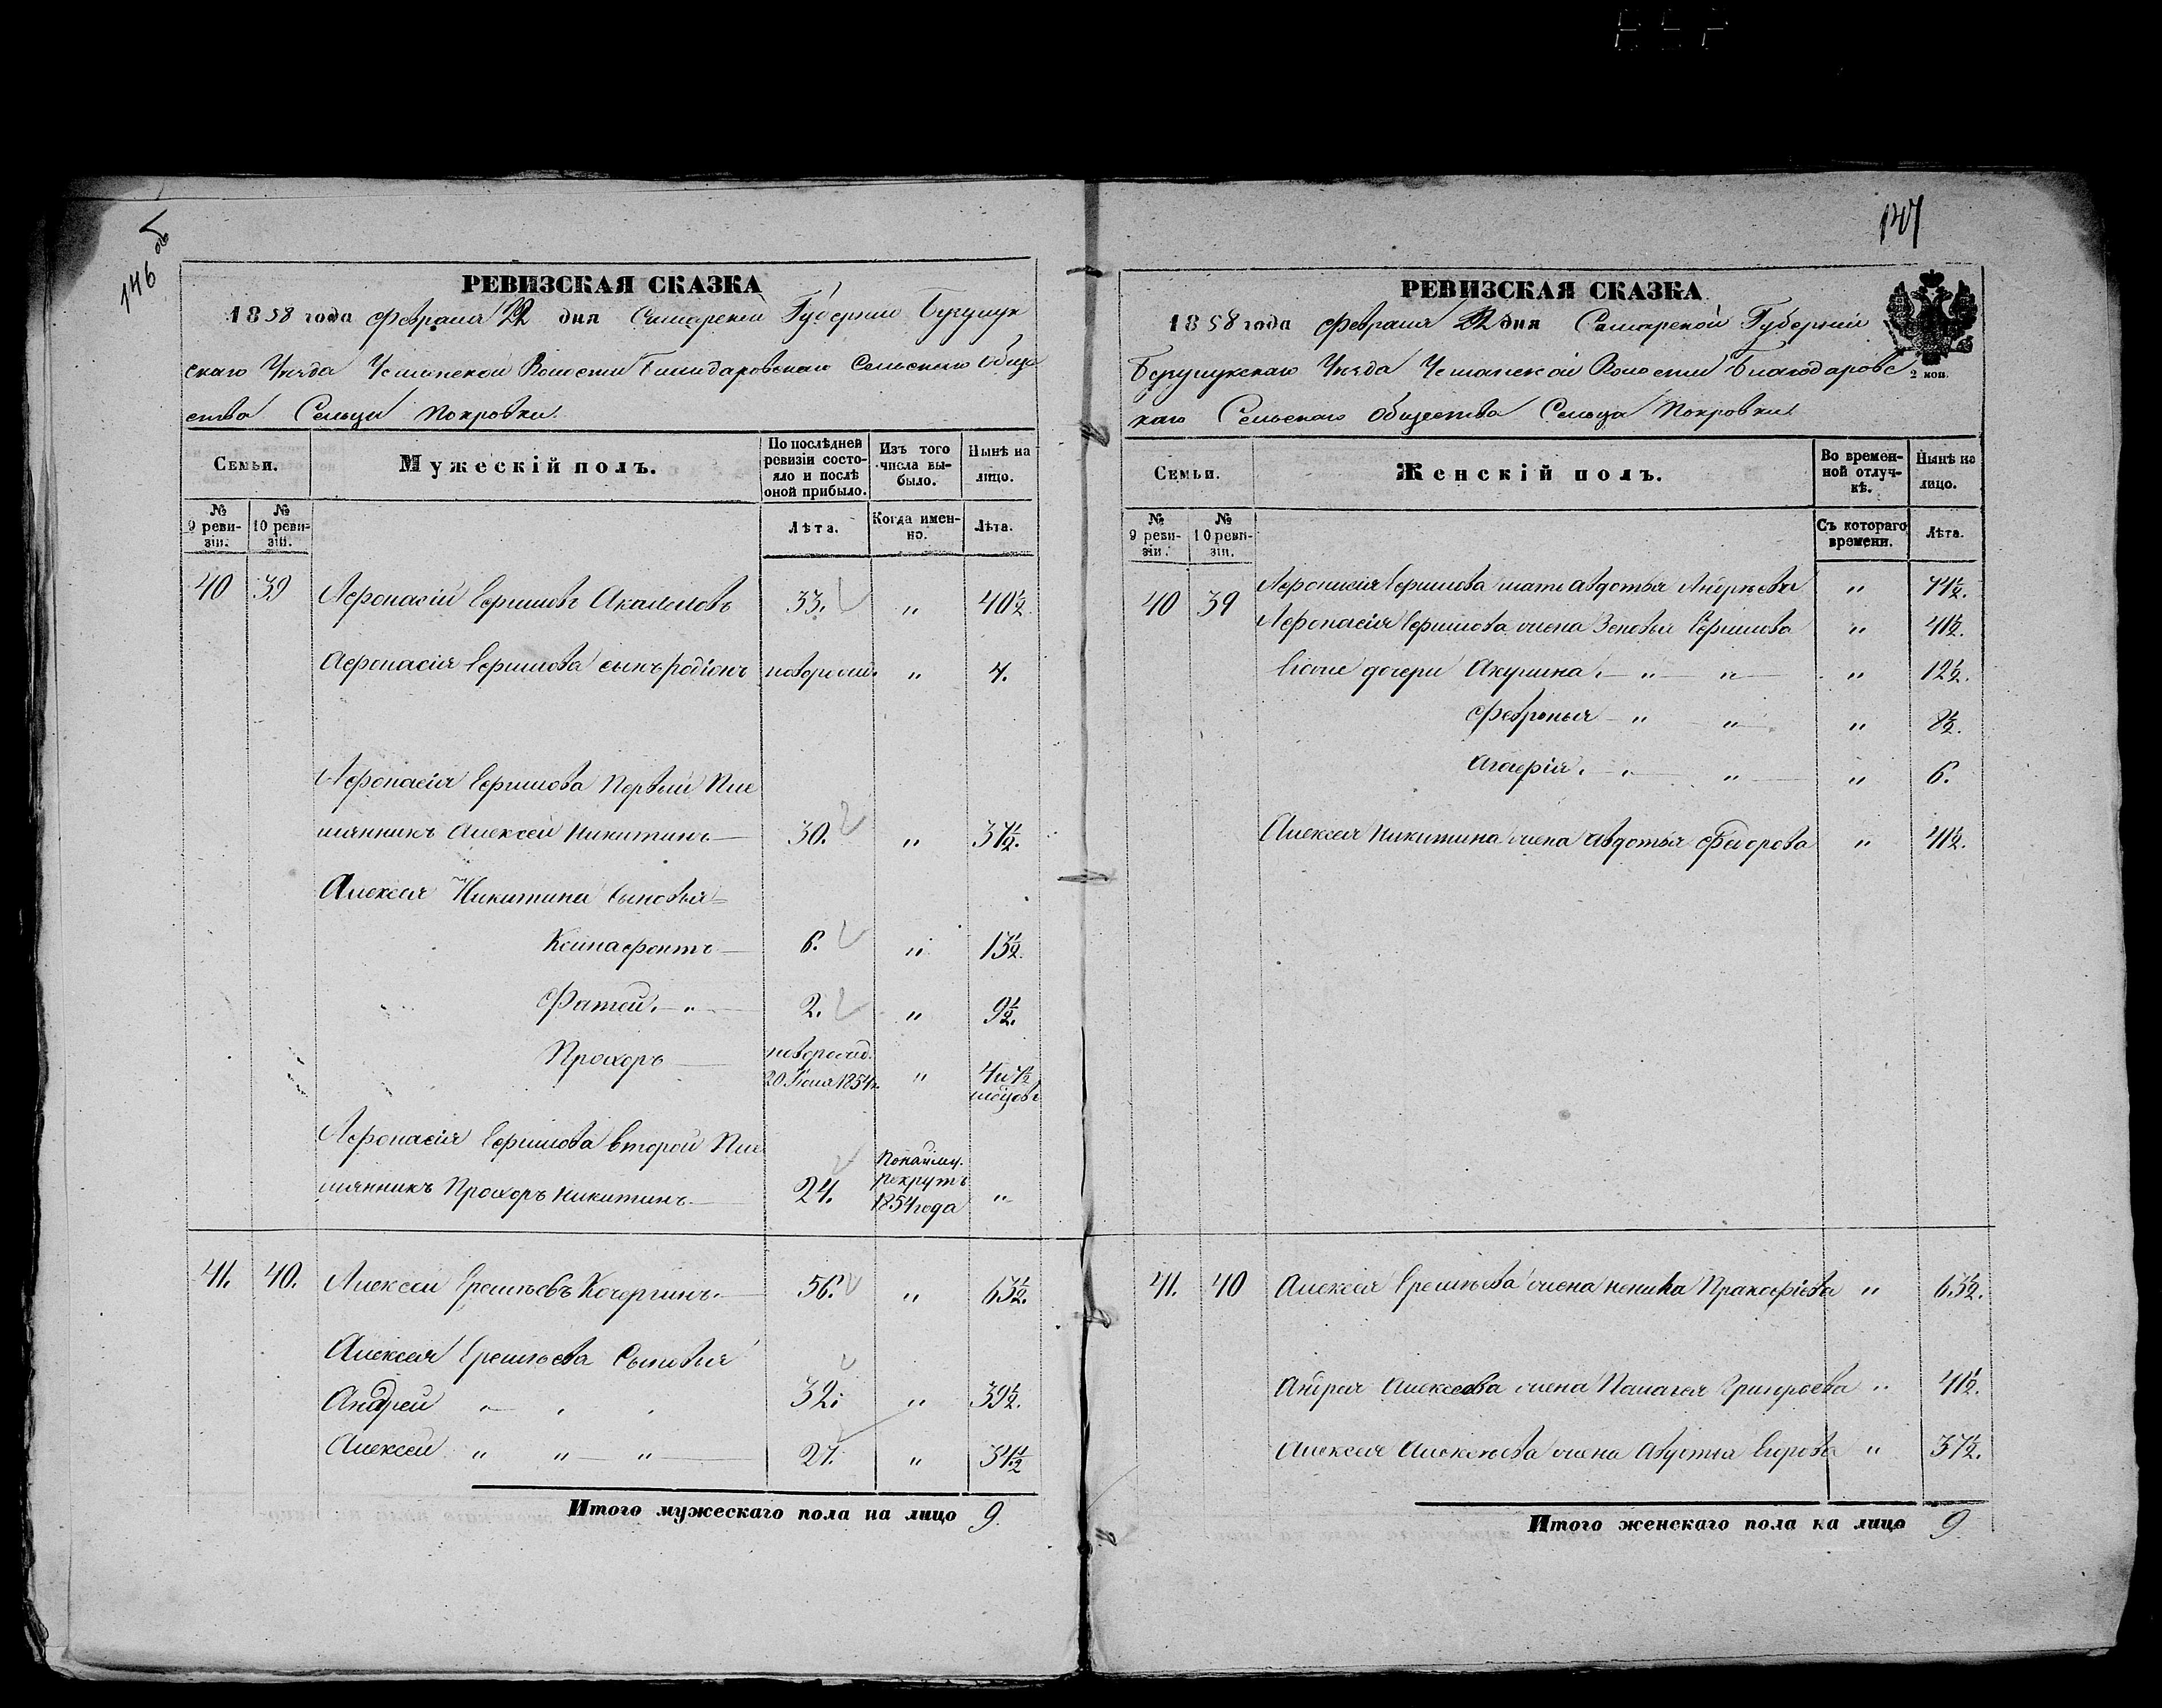 146 об
РЕВИЗСКАЯ СКАЗКА
1858 года Февраля 22 дня Самарской Губернии Бугурук
скаго Уезда Благодаровскаго Сельскаго Обще
ства Сельца Покровки
Семьи.
Мужескій полъ.
По послѣдней ревизіи состояло и послѣ оной прибыло.
Изъ того числа выбыло.
Нынѣ на лицо.
№ 9 ревизіи.
№ 10 ревизіи.
Лѣта.
Когда именно.
Лѣта.
40 39 Афонасій Ефимовъ 33. " 40½
Афонасія Ефимова сынъ Родіонъ новорожд. " 4.
Афонасія Ефимова Первый Пле
мянникъ Алексей Никитинъ 30. " 37½.
Алексея Никитина Сыновья
Ксинафонтъ 6. " 13½
Фатей " 2. " 9½.
Прохоръ новорожд. 20 Июня 1854 г. "
Афонасія Ефимова второй Пле
мянникъ Прохоръ Никитинъ 24. рекрутъ 1854 года "
41. 40. Алексей Еремѣевъ Кочергинъ 56. " 63½.
Алексея Еремѣева Сыновья
Андрей 32. " 39½.
Алексей " " " 27. " 34½
Итого мужескаго пола на лицо 9.
147
РЕВИЗСКАЯ СКАЗКА
1858 года Февраля 22 дня Самарской Губерніи
2 коп.
Уезда Волости Благодаровс
каго Сельскаго Общества Сельца Покровки
Семьи.
Женскій полъ.
Во временной отлучкѣ.
Нынѣ на лицо.
№ 9 ревизіи.
№ 10 ревизіи.
Съ котораго времени.
Лѣта.
40 39 Афонасія Ефимова мать Авдотья Андреева "
Афонасія Ефимова жена Зеновья Ефимова " 41½.
дочери Акулина " " " 12½.
Февронья " " " 8½.
" " " 6.
Алексея Никитина жена Авдотья Федорова " 41½.
41. 40 Алексея Еремѣева жена Пракофіева " 63½.
Андрея Алексеева жена Палагея Григорьева " 41½.
Алексея Алексеева жена Авдотья Егорова " 37½.
Итого женскаго пола на лицо 9